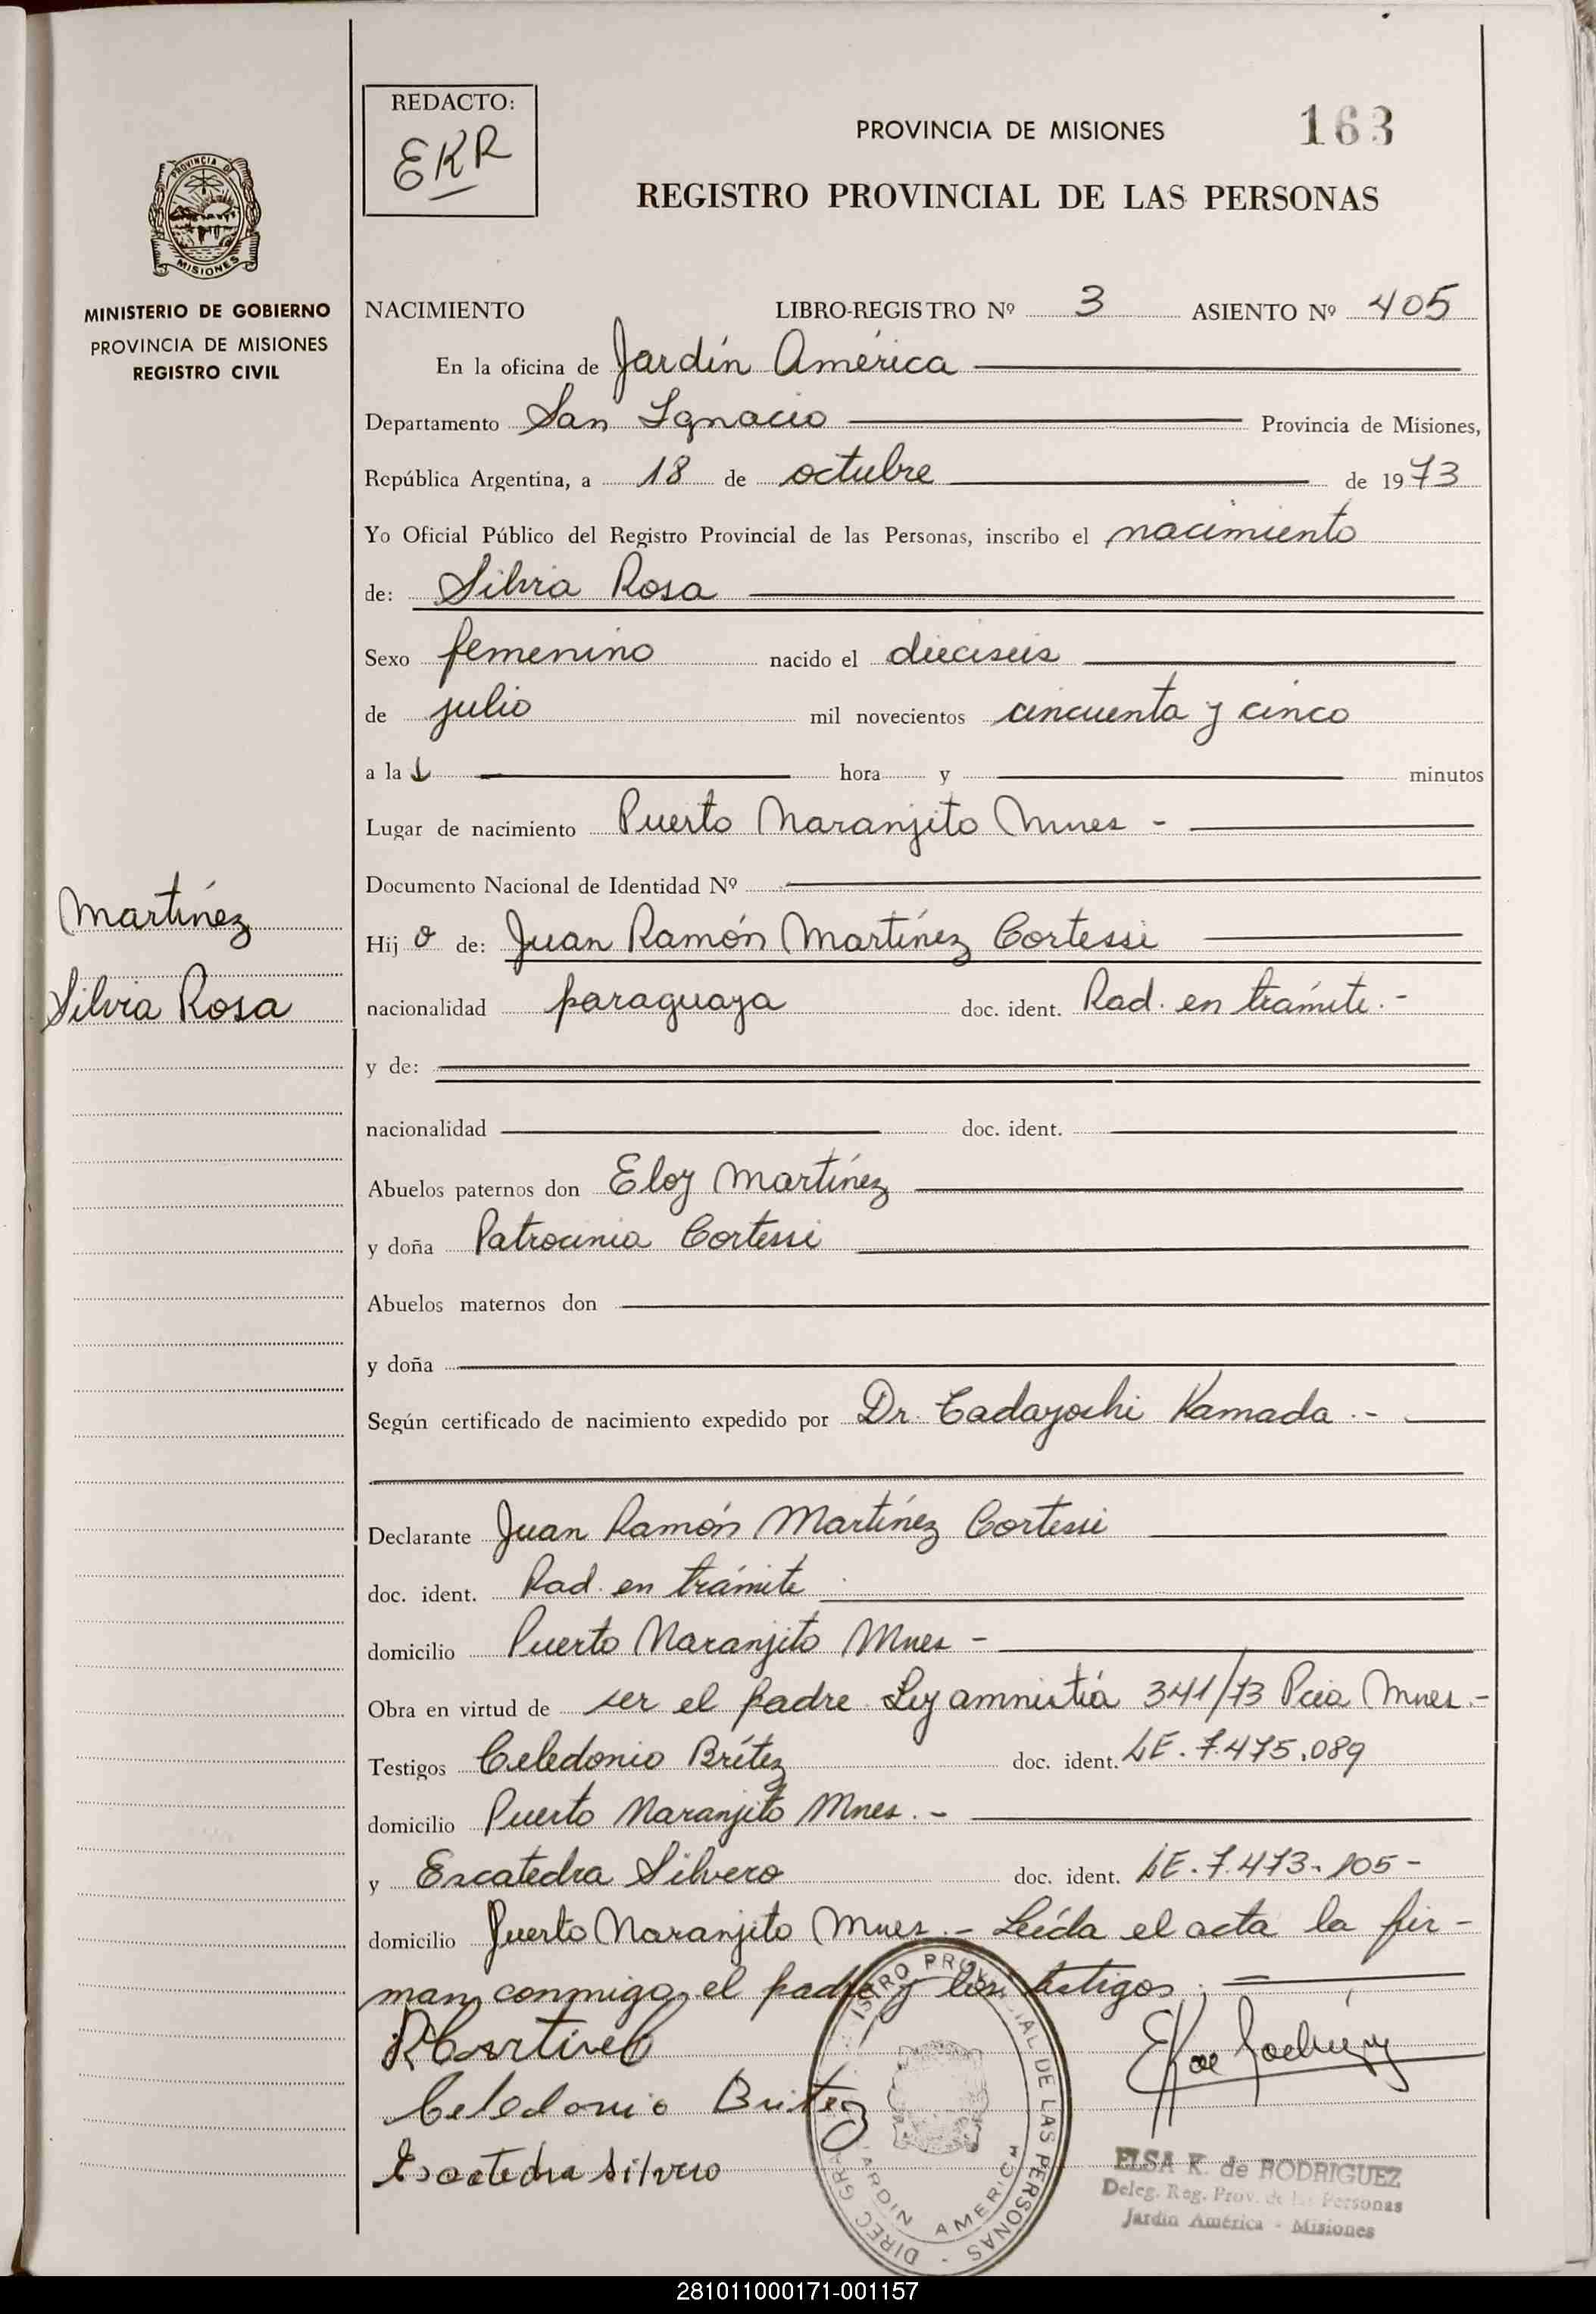 REDACTO:
EKR
PROVINCIA DE MISIONES
163
REGISTRO PROVINCIAL DE LAS PERSONAS
PROVINCIA DE
MISIONES
MINISTERIO DE GOBIERNO
PROVINCIA DE MISIONES
REGISTRO CIVIL
NACIMIENTO LIBRO-REGISTRO Nº 3 ASIENTO Nº 405
En la oficina de Jardín América
Departamento San Ignacio Provincia de Misiones,
República Argentina, a 18 de octubre de 1973
Yo Oficial Público del Registro Provincial de las Personas, inscribo el nacimiento
de: Silvia Rosa
Sexo femenino nacido el dieciseis
de julio mil novecientos cincuenta y cinco
a la hora y minutos
Lugar de nacimiento Puerto Naranjito Mnes -
Documento Nacional de Identidad Nº
Martínez
Silvia Rosa
Hij a de: Juan Ramón Martínez Cortessi
nacionalidad paraguaya doc. ident. Rad. en trámite.-
y de:
nacionalidad doc. ident.
Abuelos paternos don Eloy Martínez
y doña Patrocinia Cortessi
Abuelos maternos don
y doña
Según certificado de nacimiento expedido por Dr. Tadayochi Kamada.-
Declarante Juan Ramón Martínez Cortessi
doc. ident. Rad. en trámite
domicilio Puerto Naranjito Mnes -
Obra en virtud de ser el padre Ley amnistía 341/73 Pcia Mnes.-
Testigos Celedonio Brítez doc. ident. LE. 7.475.089
domicilio Puerto Naranjito Mnes.-
y Excatedra Silvero doc. ident. LE. 7.473.105-
domicilio Puerto Naranjito Mnes.- Leída el acta la fir-
man conmigo, el padre y los testigos.
RMartinez
Celedonio Britez
Excatedra Silvero
EK de Rodriguez
DIREC GRAL REGISTRO PROVINCIAL DE LAS PERSONAS
JARDIN AMERICA
ELSA K. de RODRIGUEZ
Deleg. Reg. Prov. de las Personas
Jardín América - Misiones
281011000171-001157